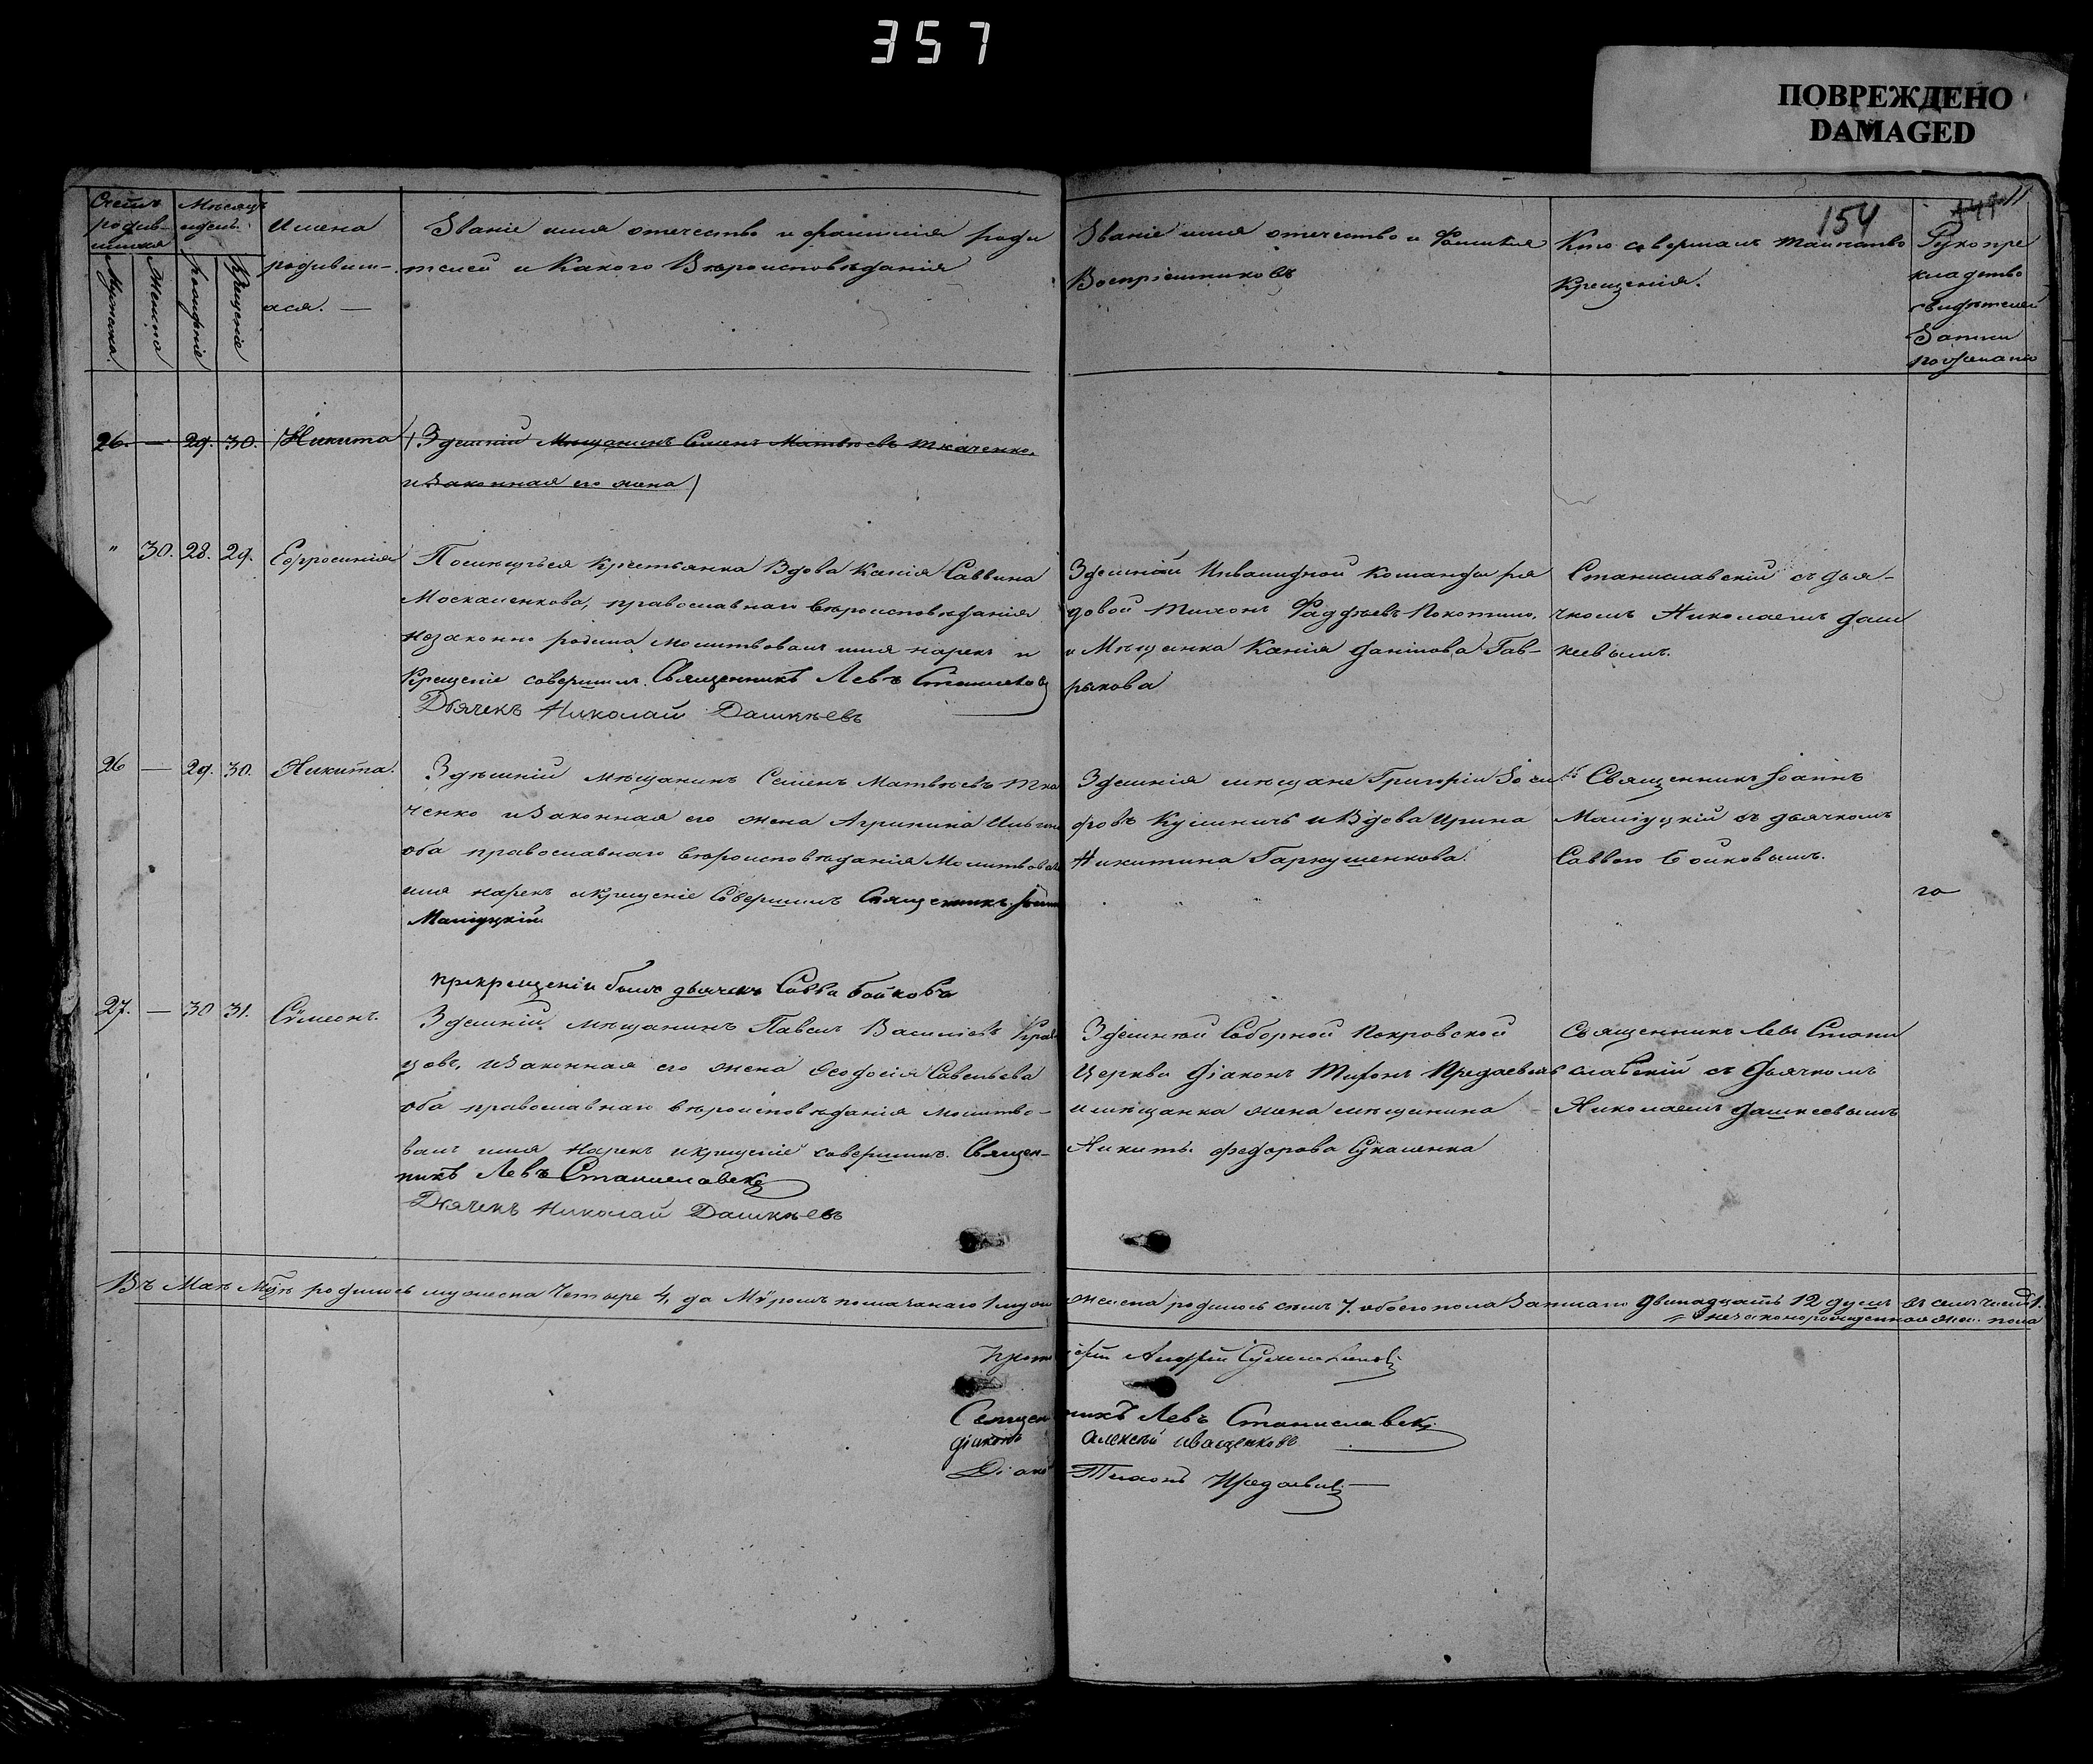 357
ПОВРЕЖДЕНО
DAMAGED
154
Счетъ родив-шихся
Мѣсяцъ и день
Мужеска
Женска
Рожденіе
Крещеніе
Имена
родивши-
хся. —
Званіе имя отечество и фамилія роди
телей и Какого Вѣроисповѣданія
Званіе имя отечество и Фамилія
Воспріемниковъ
Кто совершалъ таинство
Крещенія.
Рукопри
кладство
свидѣтелей
Записи
по желанію
26. — 29. 30. Никита
Здешній Мѣщанинъ Семенъ Матвѣевъ Ткаченко,
и Законная его жена
" 30. 28. 29. Ефросинія
Посищчья Крестьянка Вдова Ксенія Саввина
Москаленкова, православнаго вѣроисповѣданія
незаконно родила молитвовалъ имя нарекъ и
Крещеніе совершилъ. Священникъ Левъ
Дьячекъ Николай Дашкѣевъ
Здешней Инвалидной Команды ря
довой Тихонъ Фаддѣевъ Покотило,
и Мѣщанка Ксенія Данілова Гав-
рыкова
Станиславскій съ дья-
чкомъ Николаемъ Даш
кеевымъ.
26 — 29. 30. Никита.
Здѣшній мѣщанинъ Семенъ Матвѣевъ Тка
ченко и Законная его жена Агрипина
оба православнаго вѣроисповѣданія Молитвовалъ
имя нарекъ и крещеніе Совершилъ Священникъ Іоаннъ
прикрещеніи былъ дьячекъ Савва Бойковъ
Здешнія мѣщане Григорій
и Вдова Ирина
Никитина Гаркушенкова.
Священникъ Іоаннъ
съ дьячкомъ
Саввою Бойковымъ.
27. — 30 31. Сѵмеонъ.
Здешній мѣщанинъ Павелъ Василіевъ Крав
цовъ, и Законная его жена Ѳеодосія Савельева
оба православнаго вѣроисповѣданія молитво-
валъ имя нарекъ и крещеніе совершилъ. Священ-
никъ Левъ Станиславскі
Дьячекъ Николай Дашкѣевъ
Здешней Соборной Покровской
Церкви Діаконъ Тихонъ
и мѣщанка жена мѣщанина
Никиты Федорова Сукаленка
Священникъ Левъ Стани
славскій съ Дьячкомъ
Николаемъ Дашкеевымъ
Въ Маѣ М͠цѣ родилось мужеска Четыре 4, да Мѵромъ помазанаго 1 муж женска родилось семъ 7. обоего пола Записано Двинадцать 12 душъ въ семъ числѣ 1.
незаконорожденная жен. пола
Андрей
Священникъ Левъ Станиславскі
Діаконъ Алексѣй Иващенковъ
Діаконъ Тихонъ